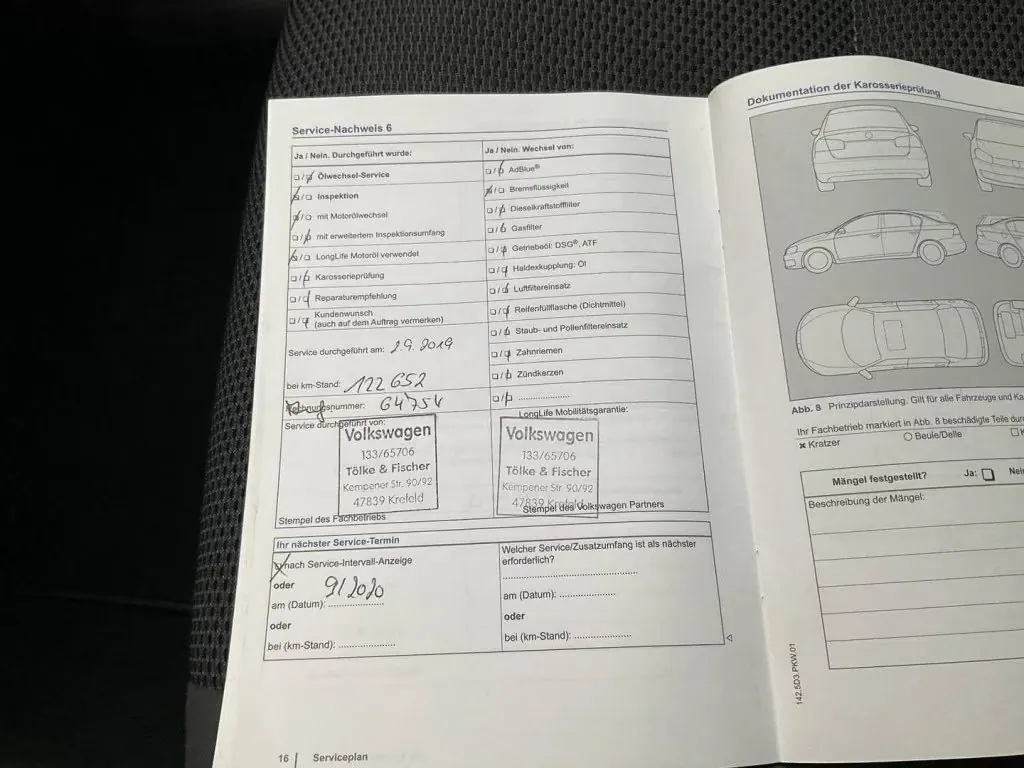 Service-Nachweis 6
Ja / Nein. Durchgeführt wurde:
Ölwechsel-Service
Inspektion
mit Motorölwechsel
mit erweitertem Inspektionsumfang
LongLife Motoröl verwendet
Karosserieprüfung
Reparaturempfehlung
Kundenwunsch
(auch auf dem Auftrag vermerken)
Service durchgeführt am: 2.9.2019
bei km-Stand: 122 652
nummer: 64754
Service durchgeführt von:
Volkswagen
133/65706
Tölke & Fischer
Kempener Str. 90/92
47839 Krefeld
Stempel des Fachbetriebs
Ja / Nein. Wechsel von:
AdBlue®
Bremsflüssigkeit
Dieselkraftstofffilter
Gasfilter
Getriebeöl: DSG®, ATF
Haldexkupplung: Öl
Luftfiltereinsatz
Reifenfüllflasche (Dichtmittel)
Staub- und Pollenfiltereinsatz
Zahnriemen
Zündkerzen
....................
LongLife Mobilitätsgarantie:
Volkswagen
133/65706
Tölke & Fischer
Kempener Str. 90/92
47839 Krefeld
Stempel des Volkswagen Partners
Ihr nächster Service-Termin
nach Service-Intervall-Anzeige
oder
9/2020
am (Datum): ....................
oder
bei (km-Stand): ....................
Welcher Service/Zusatzumfang ist als nächster
erforderlich?
..............................................
am (Datum): ....................
oder
bei (km-Stand): ....................
16 | Serviceplan
Dokumentation der Karosserieprüfung
Abb. 8 Prinzipdarstellung. Gilt für alle Fahrzeuge und
Ihr Fachbetrieb markiert in Abb. 8 beschädigte Teile
× Kratzer
Beule/Delle
Mängel festgestellt?
Ja:
Beschreibung der Mängel:
142.5D3.PKW.01